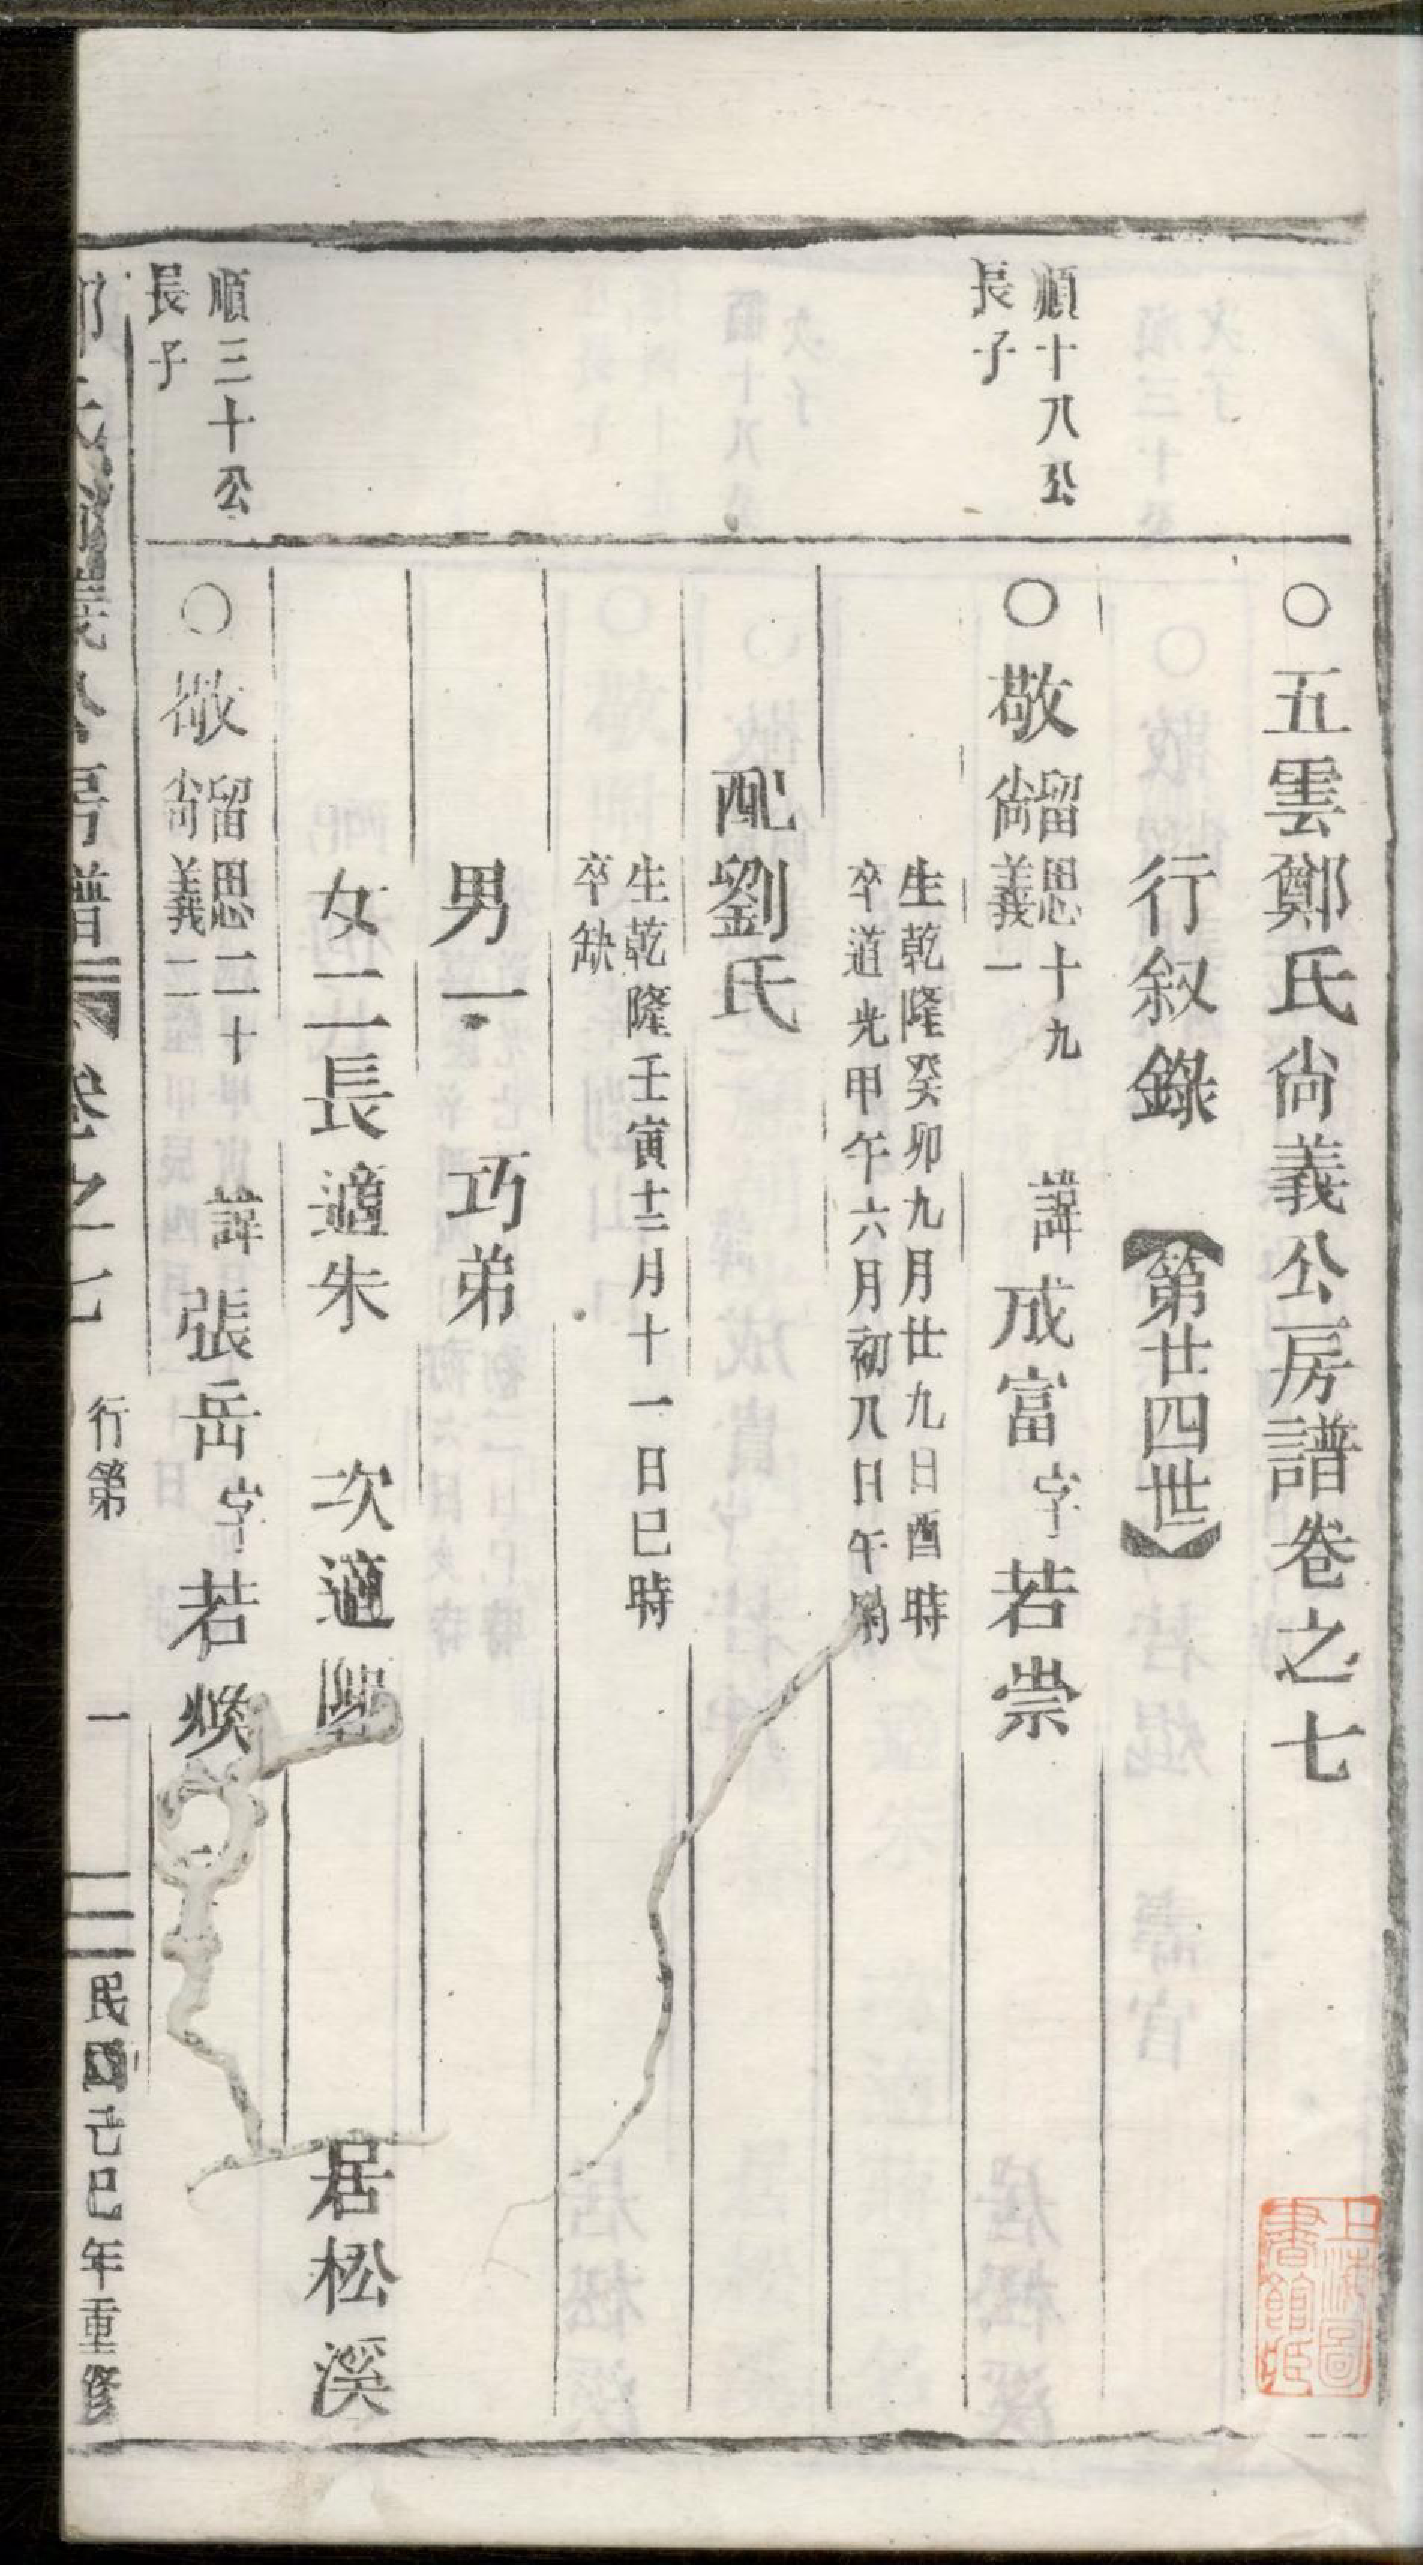 ○五雲鄭氏尙義公房譜卷之七
行叙錄【第廿四世】
順十八公
長子
○敬
留思十九
尙義一
諱成富字若崇
生乾隆癸卯九月廿九日酉時
卒道光甲午六月初八日午時
配劉氏
生乾隆壬寅十二月十一日巳時
卒缺
男一 巧弟
女二長適朱 次適 居松溪
順三十公
長子
○敬
留思二十
尙義二
諱張岳字若煥
房譜 卷之七 行第 一 民國己巳年重修
上海圖書館藏